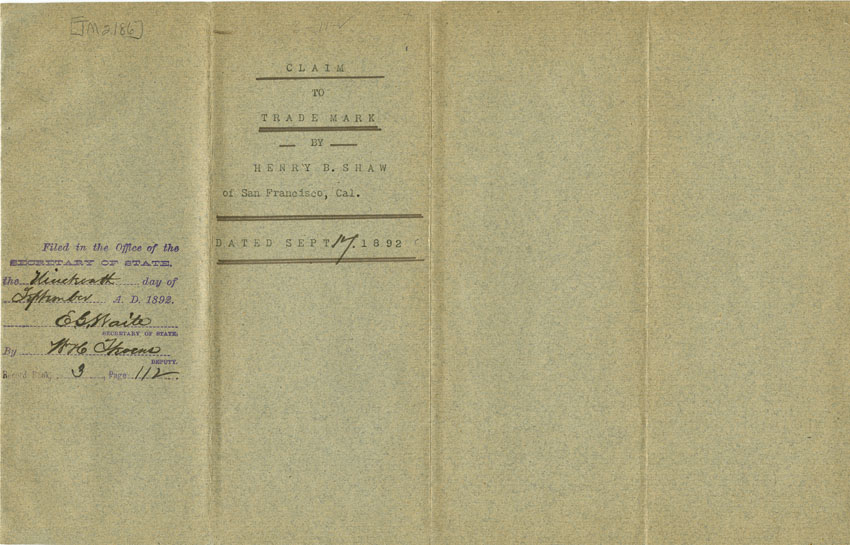 [TM 2186]
CLAIM
TO
TRADE MARK
BY
HENRY B. SHAW
of San Francisco, Cal.
DATED SEPT 17. 1892
Filed in the Office of the
SECRETARY OF STATE,
the Nineteenth day of
September A. D. 1892.
E G Waite
SECRETARY OF STATE.
By W H
DEPUTY.
Record Book, 3, Page 112